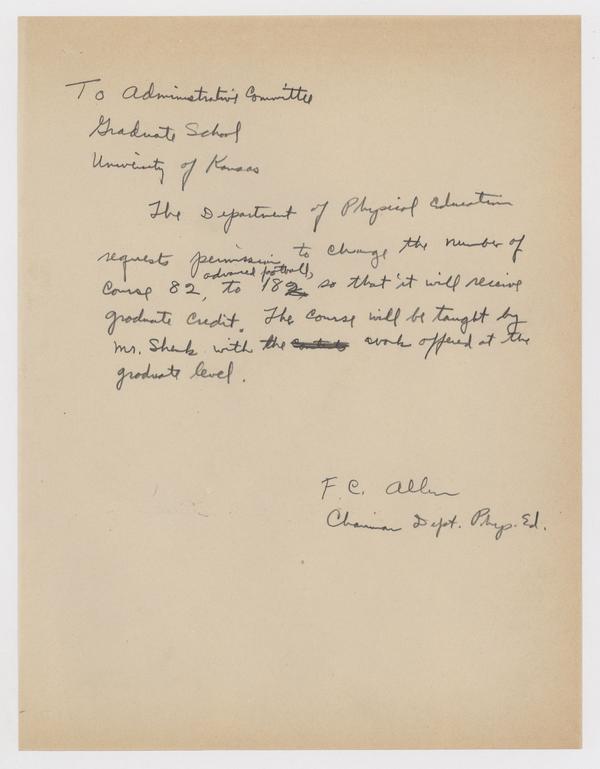 To Administrative Committee
Graduate School
University of Kansas
The Department of Physical Education
requests permission to change the number of
advanced football,
Course 82, to 182 so that it will receive
graduate credit. The course will be taught by
Mr. Shenk with the work offered at the
graduate level.
F. C. Allen
Chairman Dept. Phys. Ed.